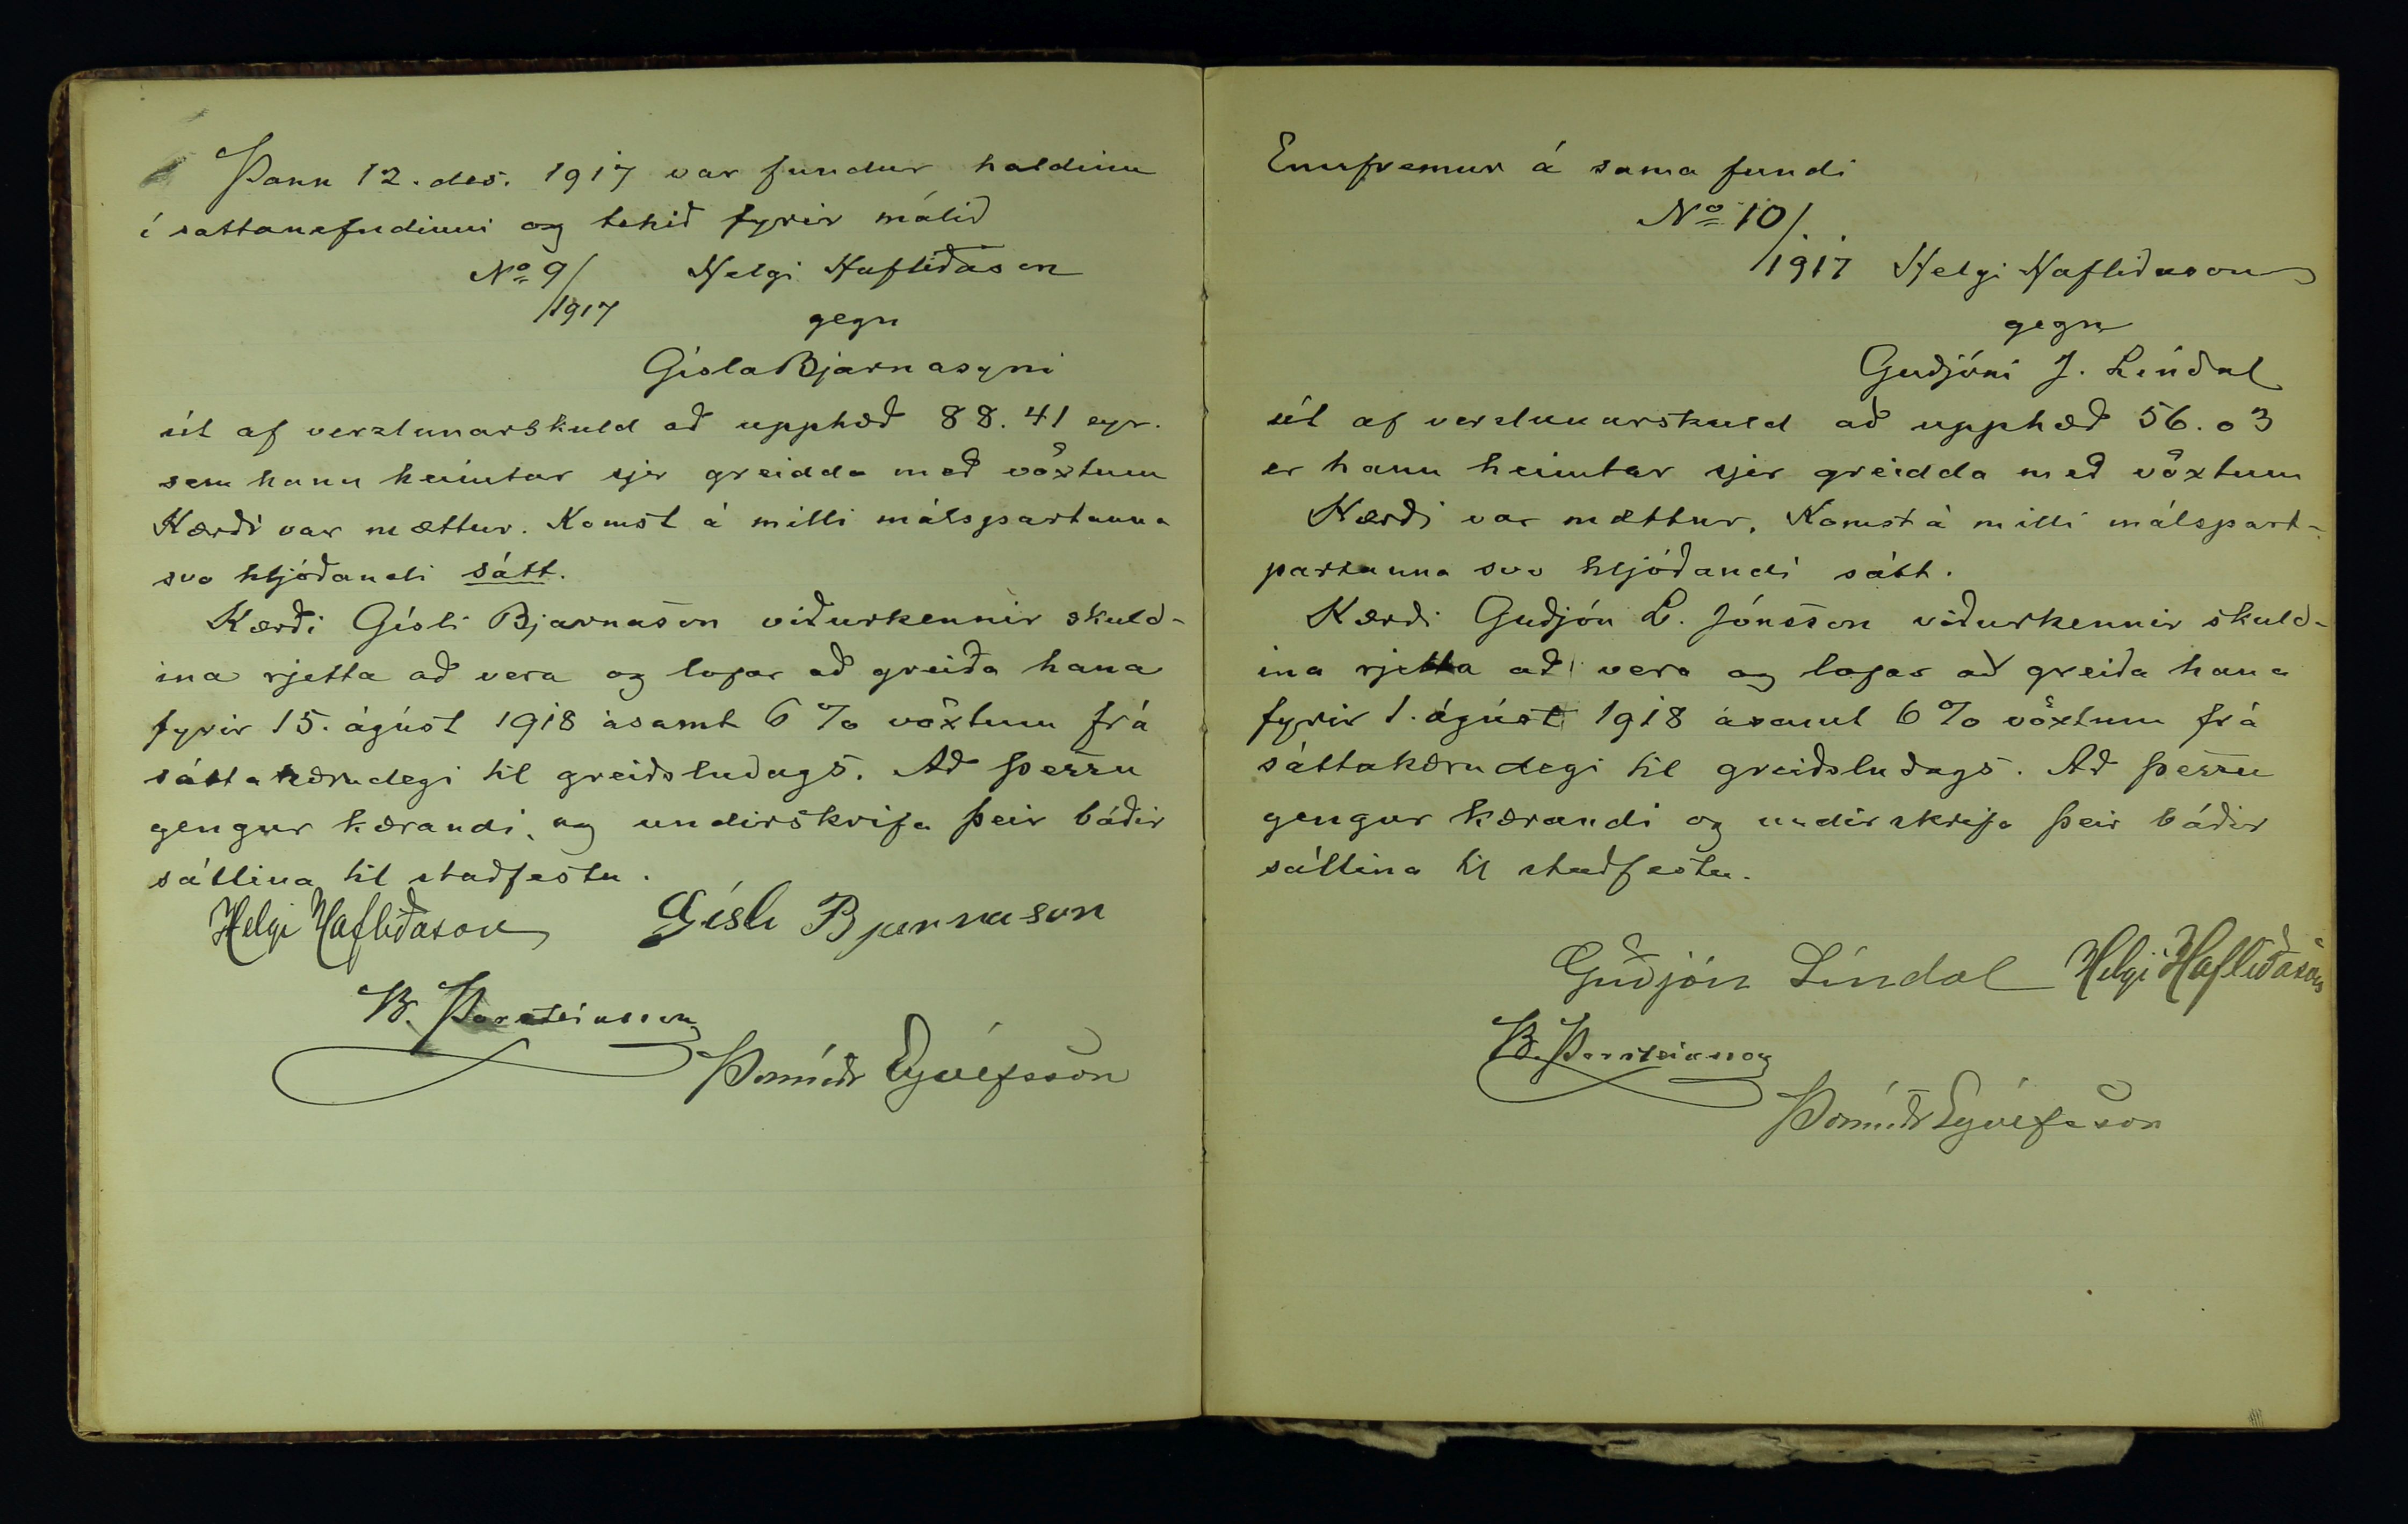 Þann 12. des. 1917 var fundur haldinn
í sattanefndinni og tekið fyrir málið
No 9/1917 Helgi Hafliðason
gegn
Gísla Bjarnasyni
út af verzlunarskuld að upphæð 88.41 eyr.
sem hann heimtar sjer greidda með vöxtum
Kærði var mættur. Komst á milli málspartanna
svo hljóðandi sátt.
Kærði Gísli Bjarnason viðurkennir skuld-
ina rjetta að vera og lofar að greiða hana
fyrir 15. ágúst 1918 ásamt 6 % vöxtum frá
sáttakærudegi til greiðsludags. Að þessu
gengur kærandi, og undirskrifa þeir báðir
sáttina til staðfestu.
Helgi Hafliðason Gísli Bjarnason
B. Þorsteinsson
Þormóðr Eyólfsson
Ennfremur á sama fundi
No 10/1917 Helgi Hafliðason
gegn
Guðjóni J. Líndal
út af verslunarskuld að upphæð 56.03
er hann heimtar sjer greidda með vöxtum
Kærði var mættur. Komst á milli málspart-
partanna svo hljóðandi sátt.
Kærði Guðjón L. Jónsson viðurkennir skuld-
ina rjetta að vera og lofar að greiða hana
fyrir 1. ágúst 1918 ásamt 6 % vöxtum frá
sáttakærudegi til greiðsludags. Að þessu
gengur kærandi og undirskrifa þeir báðir
sáttina til staðfestu.
Guðjón Líndal Helgi Hafliðason
B. Þorsteinsson
Þormóðr Eyólfsson